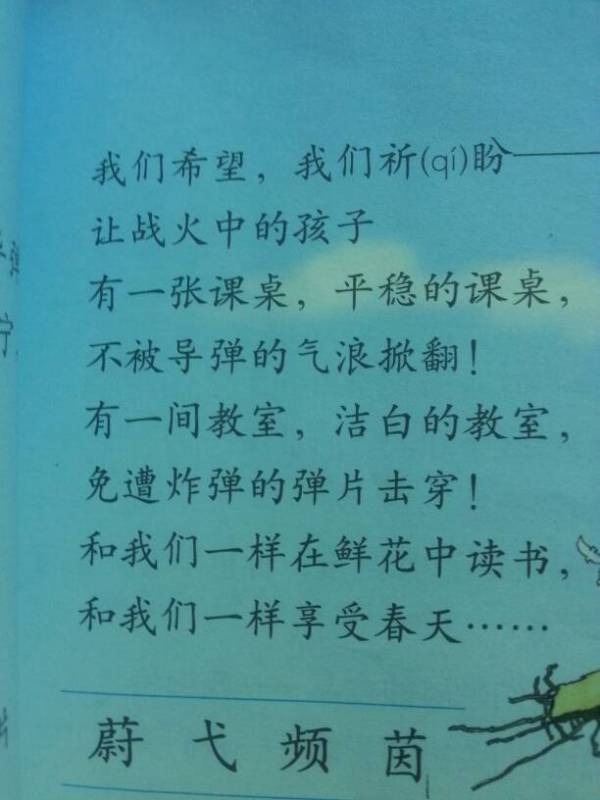 我们希望，我们祈(qí)盼——
让战火中的孩子
有一张课桌，平稳的课桌，
不被导弹的气浪掀翻！
有一间教室，洁白的教室，
免遭炸弹的弹片击穿！
和我们一样在鲜花中读书，
和我们一样享受春天……
蔚 弋 频 茵